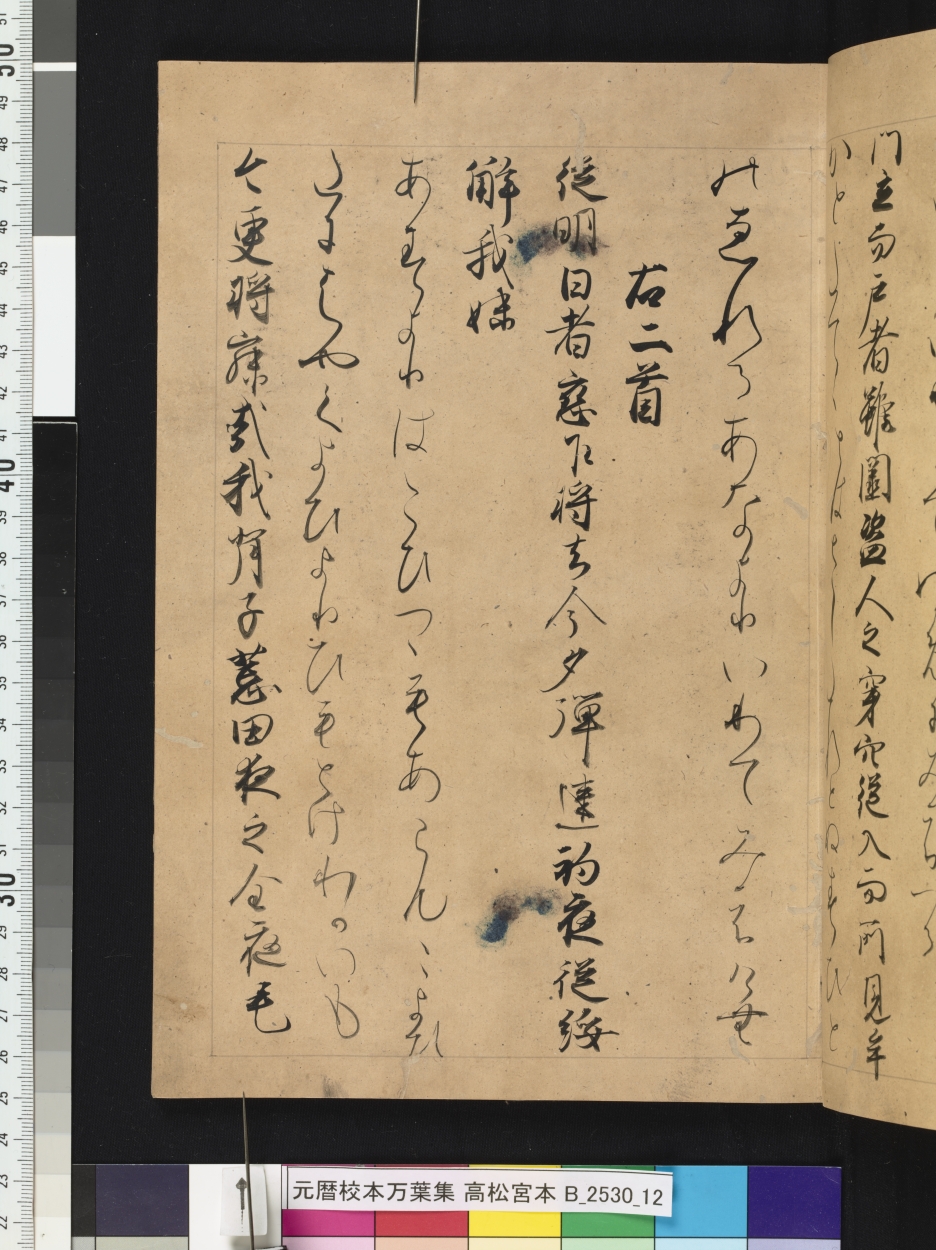 門立而戸者雖闔盗人之穿穴従入而所見牟
かとたてゝとはさしたれとぬすひと
のゑれるあなよりいりてみえけむ
右二首
従明日者恋乍将去今夕弾速初夜従綏
解我妹
あすよりはこひつゝもあらんこよひ
たにはやくよひよりひもとけわかいも
今更将寐哉我背子荒田夜之全夜毛
元暦校本万葉集 高松宮本 B_2530_12